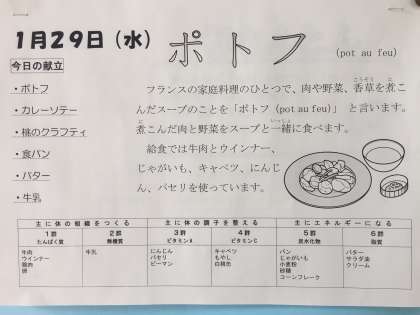 1月29日（水）
ポトフ
(pot au feu)
今日の献立
・ポトフ
・カレーソテー
・桃のクラフティ
・食パン
・バター
・牛乳
フランスの家庭料理のひとつで、肉や野菜、香草を煮こ
んだスープのことを「ポトフ（pot au feu）」と言います。
煮こんだ肉と野菜をスープと一緒に食べます。
給食では牛肉とウインナー、
じゃがいも、キャベツ、にんじ
ん、パセリを使っています。
主に体の組織をつくる 主に体の調子を整える 主にエネルギーになる
1群 2群 3群 4群 5群 6群
たんぱく質 無機質 ビタミンA ビタミンC 炭水化物 脂質
牛肉 牛乳 にんじん キャベツ パン バター
ウインナー パセリ もやし じゃがいも サラダ油
鶏肉 ピーマン 白桃缶 小麦粉 クリーム
卵 砂糖
コーンフレーク